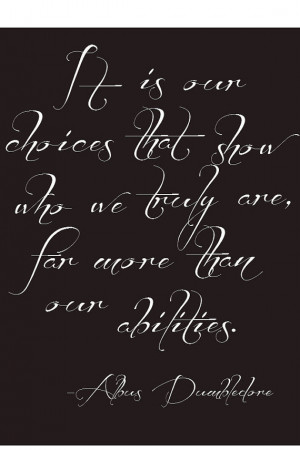 It is our
choices that show
who we truly are,
far more than
our abilities.
-Albus Dumbledore